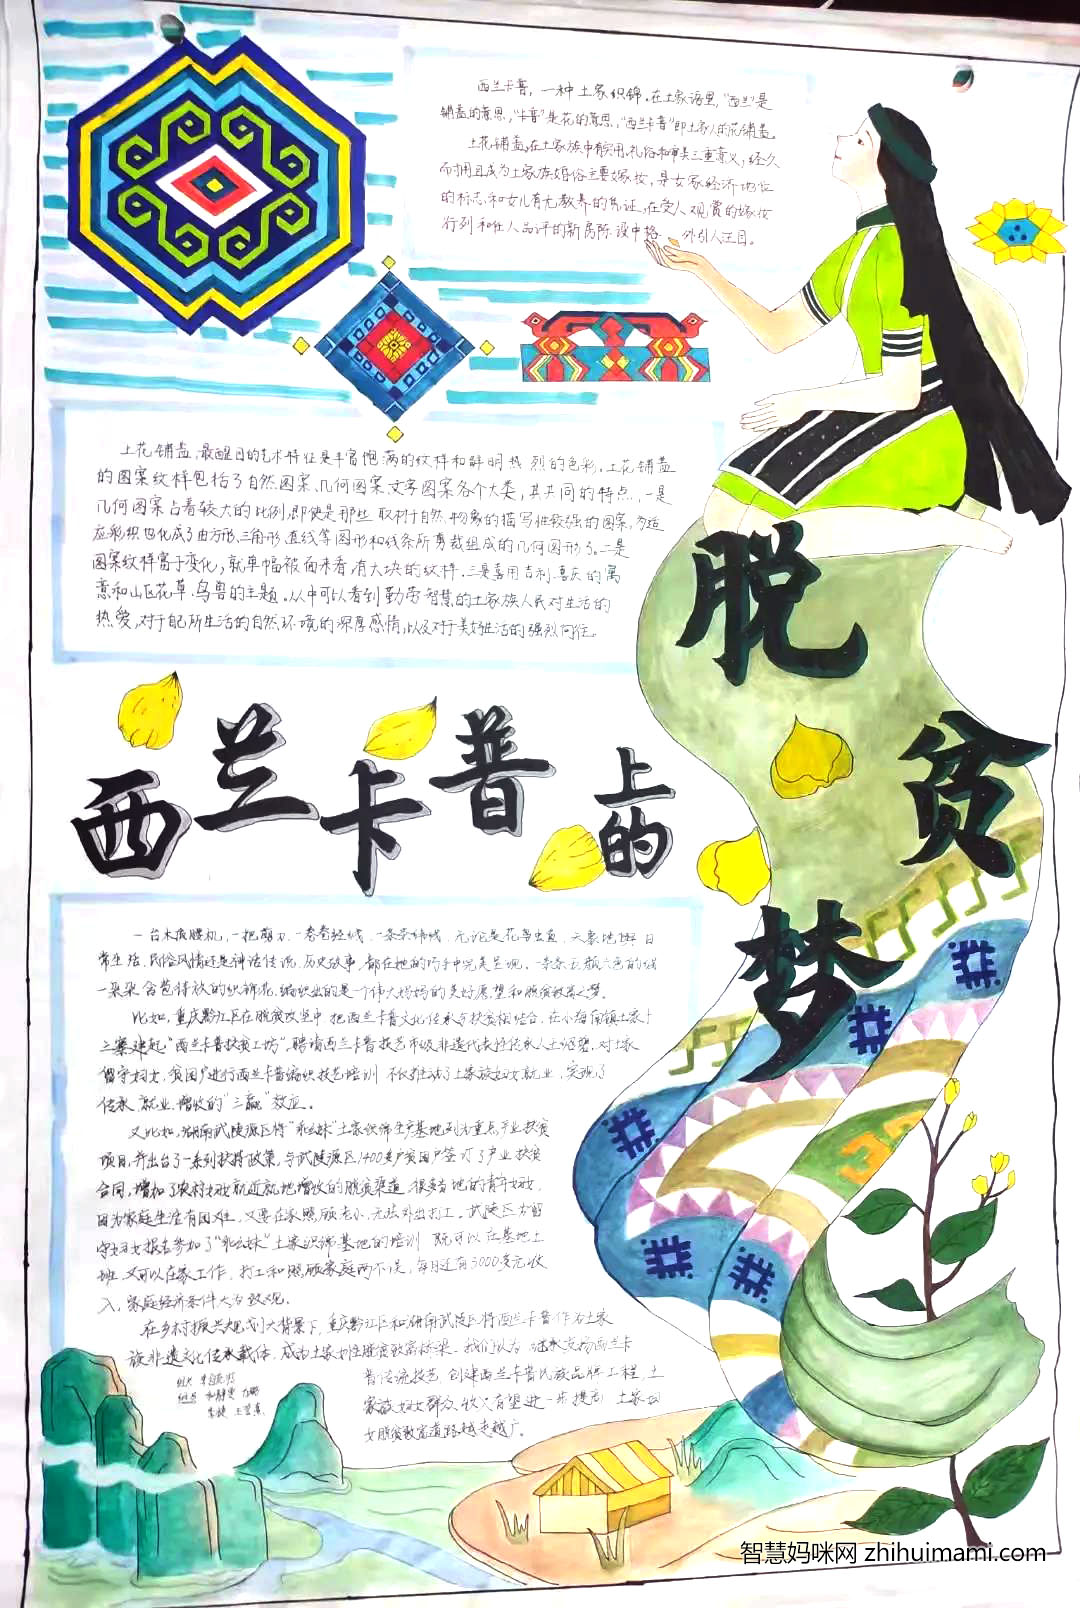 西兰卡普，一种土家织锦。在土家语里，“西兰”是
铺盖的意思，“卡普”是花的意思，“西兰卡普”即土家人的花铺盖。
土花铺盖，在土家族中有实用、礼俗和审美三重意义，经久
耐用且成为土家族婚俗主要嫁妆，是女家经济地位
的标志，和女儿有无教养的凭证。在受人观赏的嫁妆
行列和任人品评的新房陈设中格外引人注目。
土花铺盖，最醒目的艺术特征是丰富饱满的纹样和鲜明热烈的色彩。土花铺盖
的图案纹样包括了自然图案、几何图案、文字图案各个大类，其共同的特点，一是
几何图案占着较大的比例，即使是那些取材于自然物象的描写性较强的图案，为适
应彩织也化成了由方形、三角形、直线等图形和线条所剪裁组成的几何图形了。二是
图案纹样富于变化，就单幅被面来看有大块的纹样，三是喜用吉利喜庆的寓
意和山区花草、鸟兽的主题。从中可以看到勤劳智慧的土家族人民对生活的
热爱，对于自己所生活的自然环境的深厚感情，以及对于美好生活的强烈向往。
西兰卡普上的
脱贫梦
一台木质腰机，一把剪刀，一卷卷经线，一条条纬线，无论是花鸟虫鱼、天象地舆、日
常生活、民俗风情还是神话传说、历史故事，都在她的巧手中完美呈现。一条条五颜六色的
一朵朵含苞待放的织锦花，编织出的是一个伟大妈妈的美好愿望和脱贫致富之梦。
比如，重庆黔江区在脱贫攻坚中把西兰卡普文化传承与扶贫相结合，在小南海镇土家十
三寨建起“西兰卡普扶贫工坊”，聘请西兰卡普技艺市级非遗代表性传承人，对土家
留守妇女，贫困户进行西兰卡普编织技艺培训，不仅推动了土家族妇女就业，实现了
传承、就业、增收的“三赢”效应。
又比如，湖南武陵源区将“乖幺妹”土家织锦生产基地列为重点产业扶贫
项目，并出台了一系列扶持政策，与武陵源区1400多户贫困户签订了产业扶贫
合同，增加了农村妇女就近就地增收的脱贫渠道。很多当地的青年妇女，
因为家庭生活有困难，又要在家照顾老小，无法外出打工。武陵区为留
守妇女报名参加了“乖幺妹”土家织锦基地的培训，既可以在基地上
班，又可以在家工作，打工和照顾家庭两不误，每月还有3000多元收
入，家庭经济条件大为改观。
在乡村振兴规划大背景下，重庆黔江区和湖南武陵区将西兰卡普作为土家
族非遗文化传承载体，成为土家妇女脱贫致富桥梁。我们认为，继承发扬西兰卡
普传统技艺，创建西兰卡普民族品牌工程，土
家族妇女群众收入有望进一步提高，土家妇
女脱贫致富道路越走越广。
智慧妈咪网 zhihuimami.com